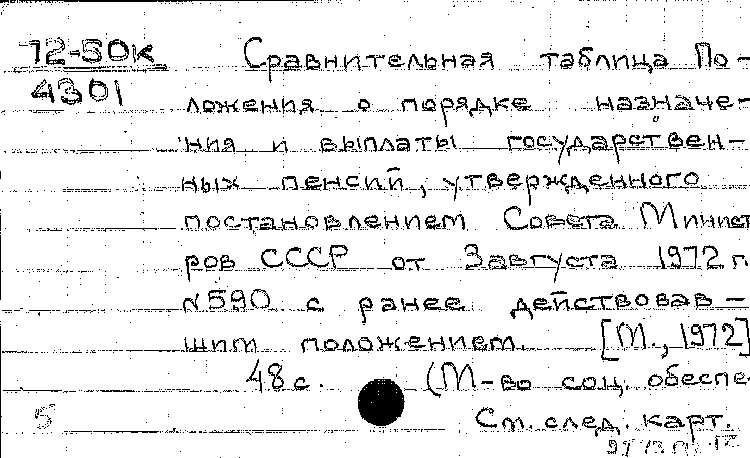 72-50к Сравнительная таблица По-
4301 ложения о порядке назначе-
ния и выплаты государствен-
ных пенсий, утвержденного
постановлением Совета Минист
ров СССР от 3 августа 1972 г.
№590 с ранее действовав-
шим положением. [М., 1972]
48 с. (М-во соц. обеспе
5 См. след. карт.